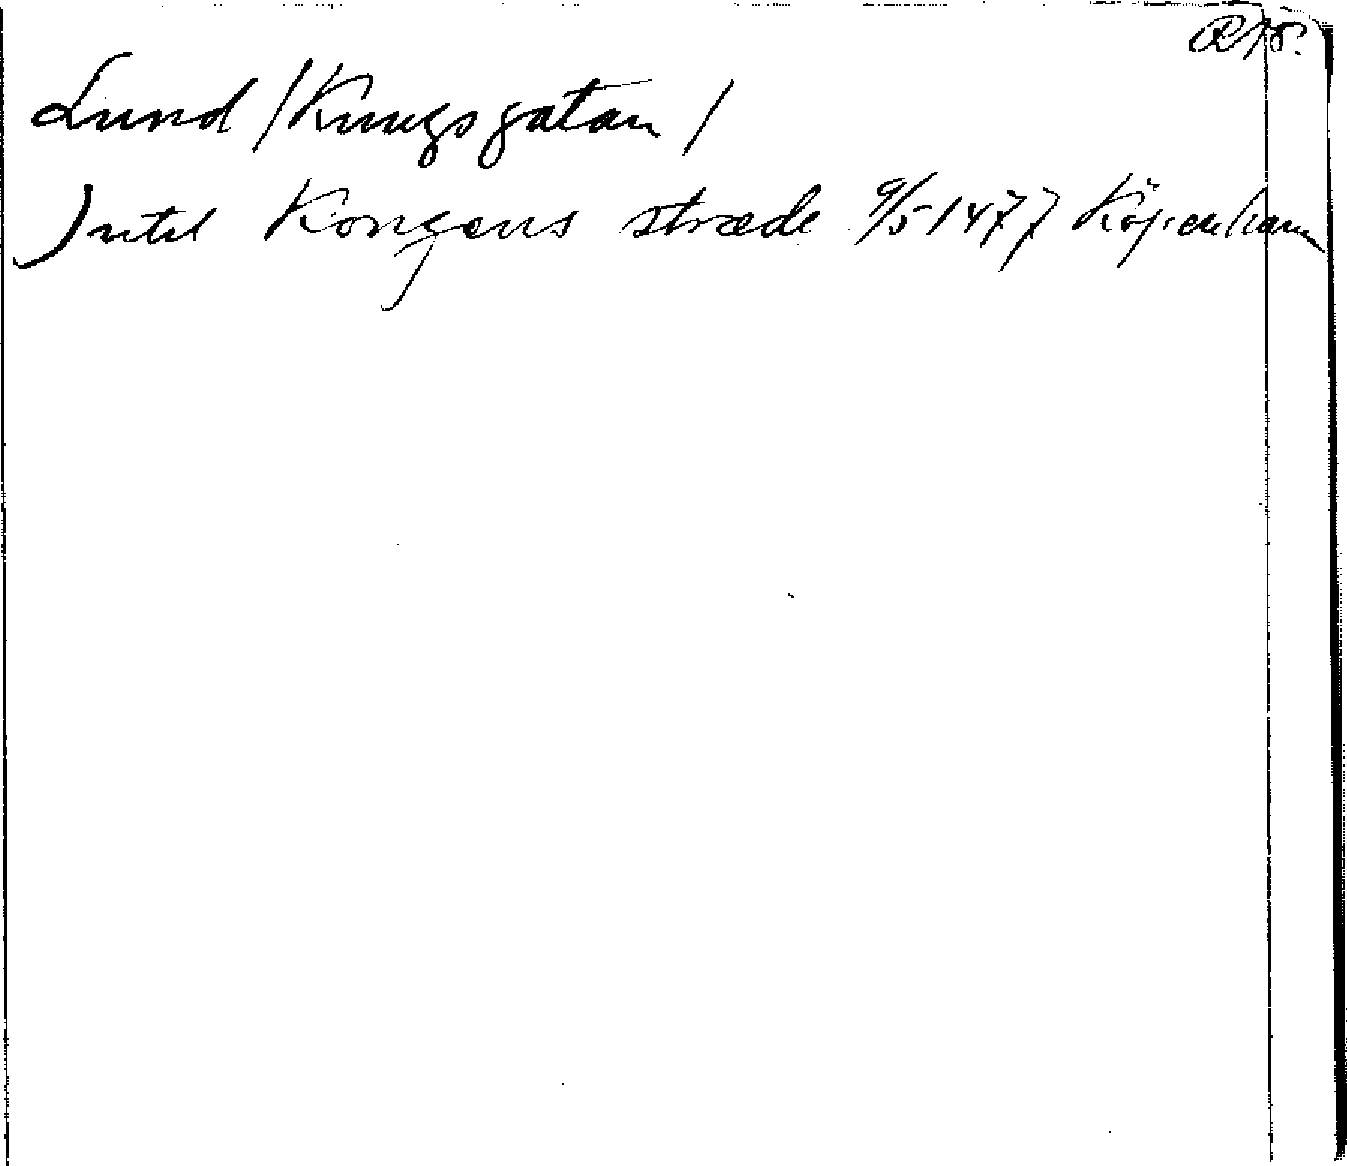 Lund /Kungsgatan/
Intil Kongens stræde 9/5 1477 Köpenhamn